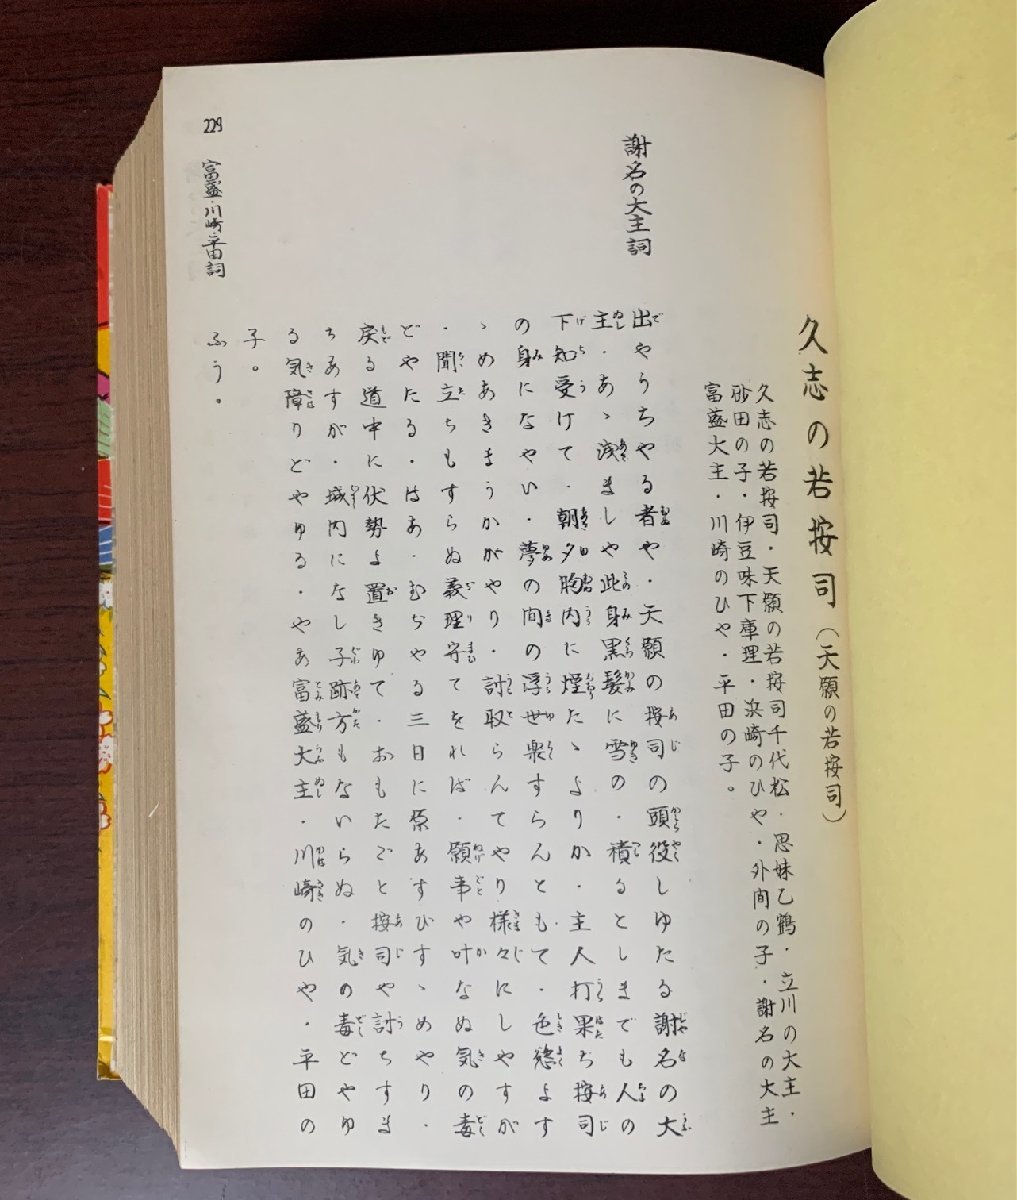 久志の若按司（天願の若按司）
久志の若按司・天願の若按司千代松・思妹乙鶴・立川の大主・
砂田の子・伊豆味下庫理・浜崎のひや・外間の子・謝名の大主
富盛大主・川崎のひや・平田の子。
謝名の大主詞
出やうちやる者や・天願の按司の頭役しゆたる謝名の大
主・あゝ浅ましや此身黒髪に雪の・積るとしまでも人の
下知受けて・朝夕胸内に煙たゝよりか・主人打果ち按司
の身になやい・夢の間の浮世楽すらんともて・色慾よす
ゝめあきまうかがやり・討取らんてやり様々にしやすが
・聞立ちもすらぬ義理守てをれば・願事や叶なぬ気の毒
どやたる・はあ・むぢやる三日に原あすびすゝめやり・
戻る道中に伏勢よ置きゆて・おもたごと按司や討ちすま
ちあすが・城内になし子跡方もないらぬ・気の毒どやゆ
る気障りどやゆる・やあ富盛大主・川崎のひや・平田の
子。
229
富盛・川崎・平田詞
ふう。